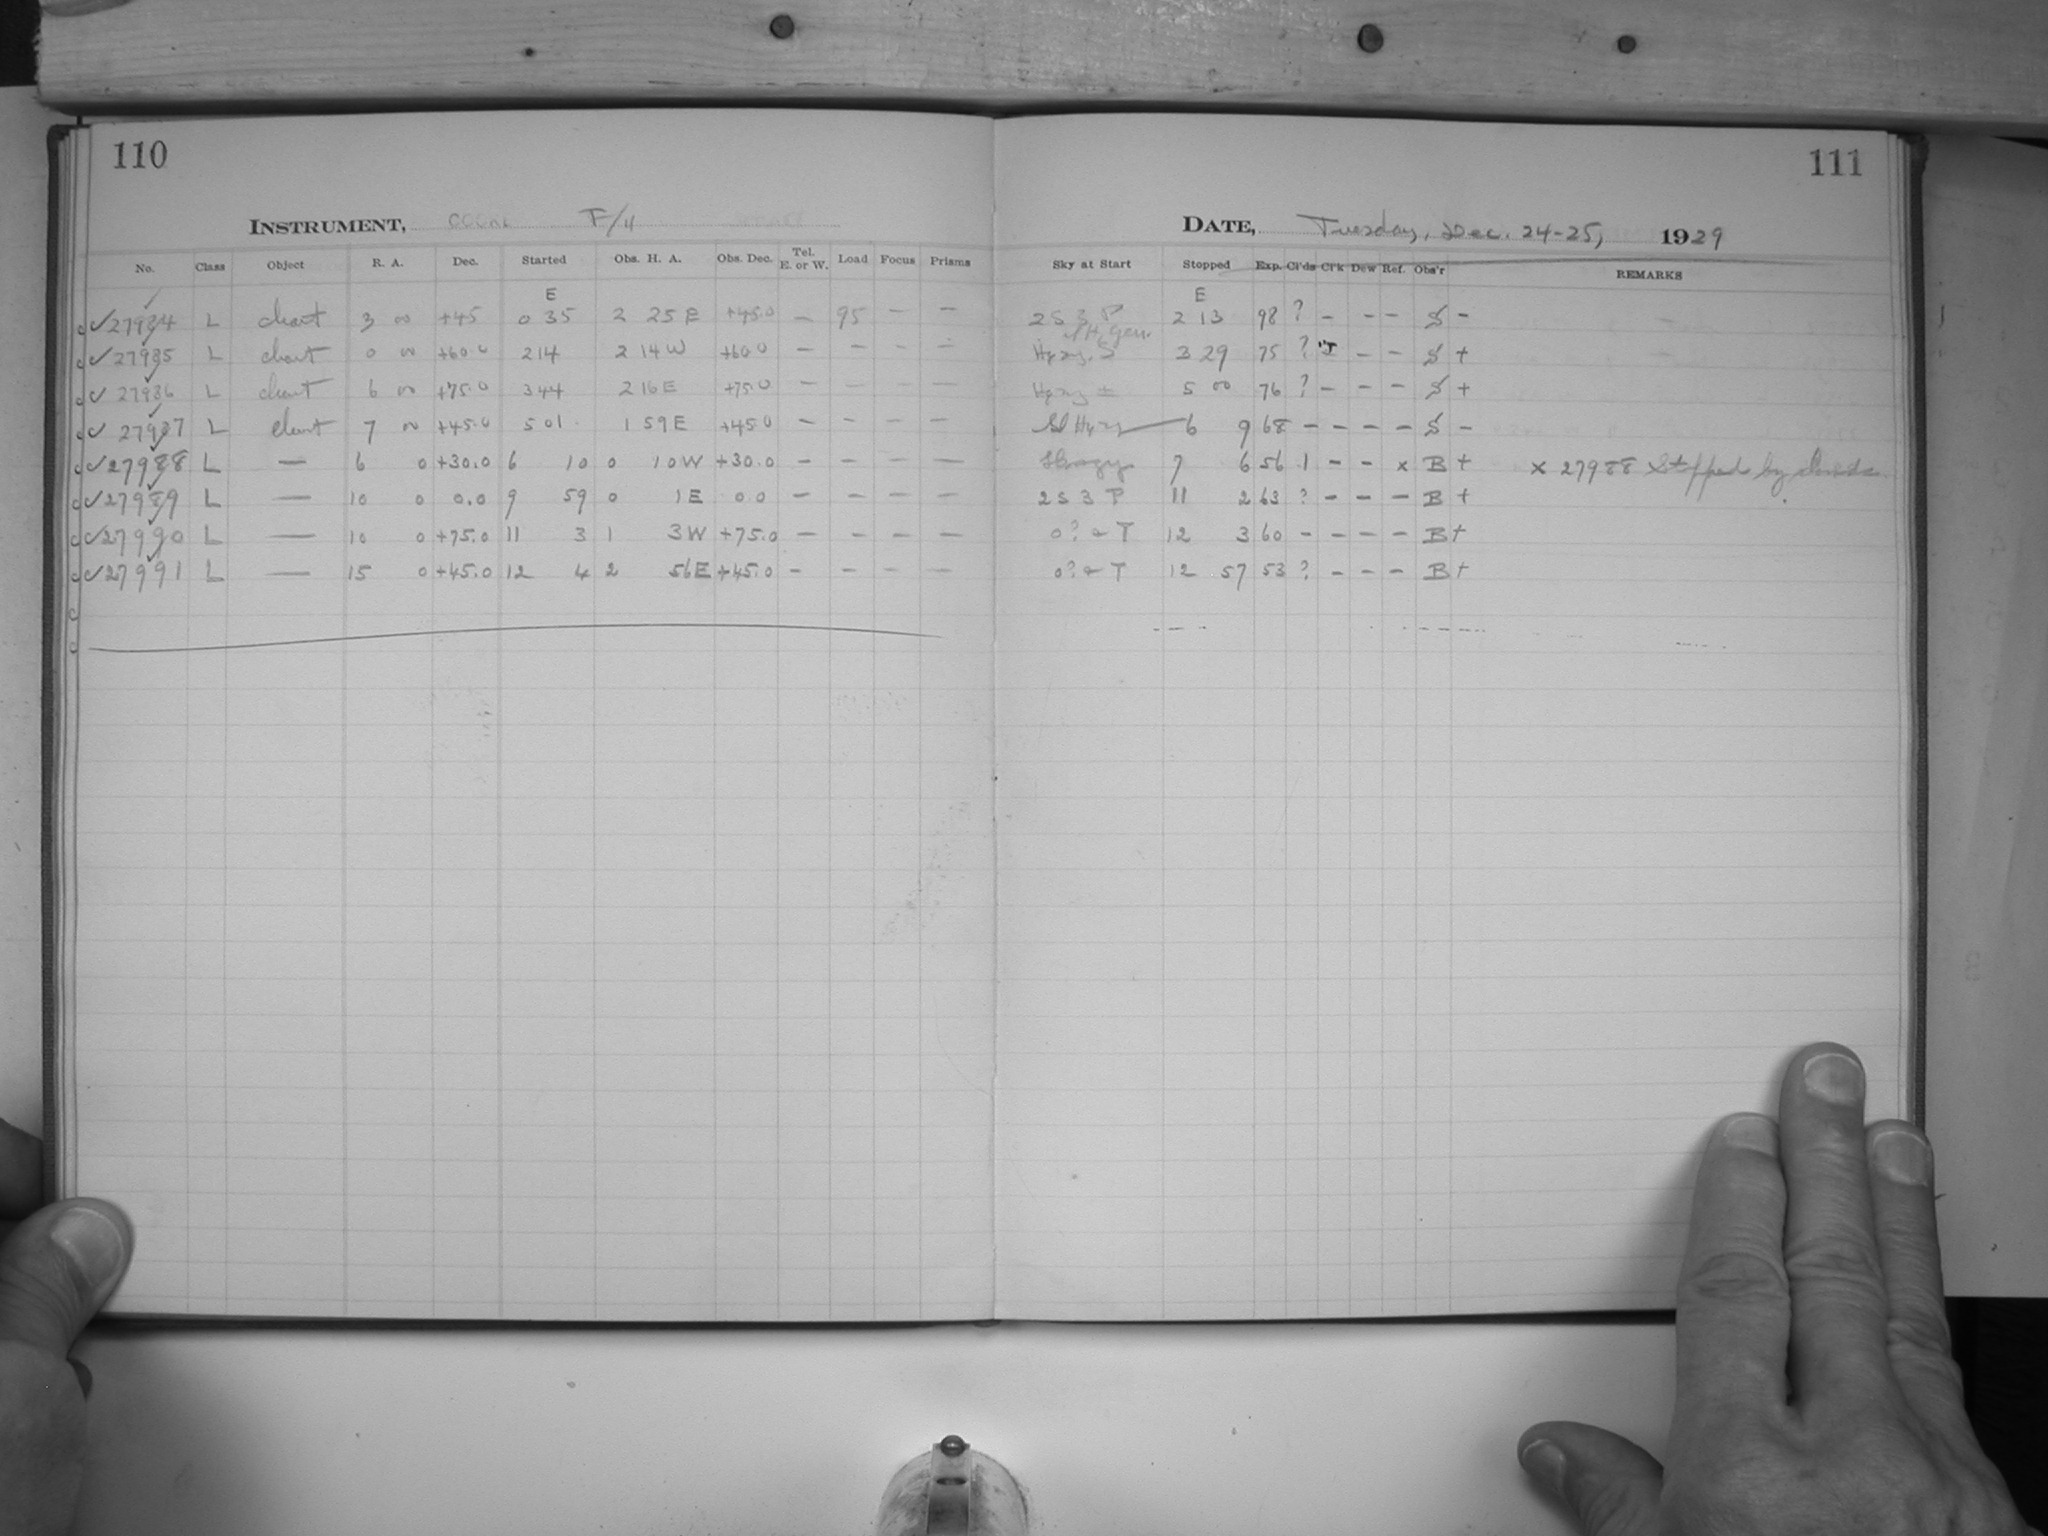 110
111
INSTRUMENT, COOKE
DATE, Tuesday, Dec. 24-25, 1929
No. Class Object R. A. Dec. Started Obs. H. A. Obs. Dec. Tel. E. or W. Load Focus Prisms Sky at Start Stopped Exp. Cl'ds Cl'k Dew Ref. Obs'r REMARKS
E E
L chart 3 00 +45 0 35 2 25 E +45.0 - 95 - - 2 S 3 P 2 13 98 ? - - - S -
L chart 0 00 +60.0 2 14 2 14 W +60 0 - - - - 3 29 75 ? - - S +
L chart 6 00 +75.0 3 44 2 16 E +75.0 - - - - 5 00 76 ? - - - S +
L chart 7 00 +45.0 5 01 1 59 E +45 0 - - - - 6 9 68 - - - - S -
✓27988 L — 6 0 +30.0 6 10 0 10 W +30.0 - - - - 7 6 56 1 - - x B + x 27988 Stopped by clouds
✓27989 L — 10 0 0.0 9 59 0 1 E 0 0 - - - - 2 S 3 P 11 2 63 ? - - - B +
✓27990 L — 10 0 +75.0 11 3 1 3 W +75.0 - - - - 12 3 60 - - - - B +
✓27991 L — 15 0 +45.0 12 4 2 56 E +45.0 - - - - 12 57 53 ? - - - B +